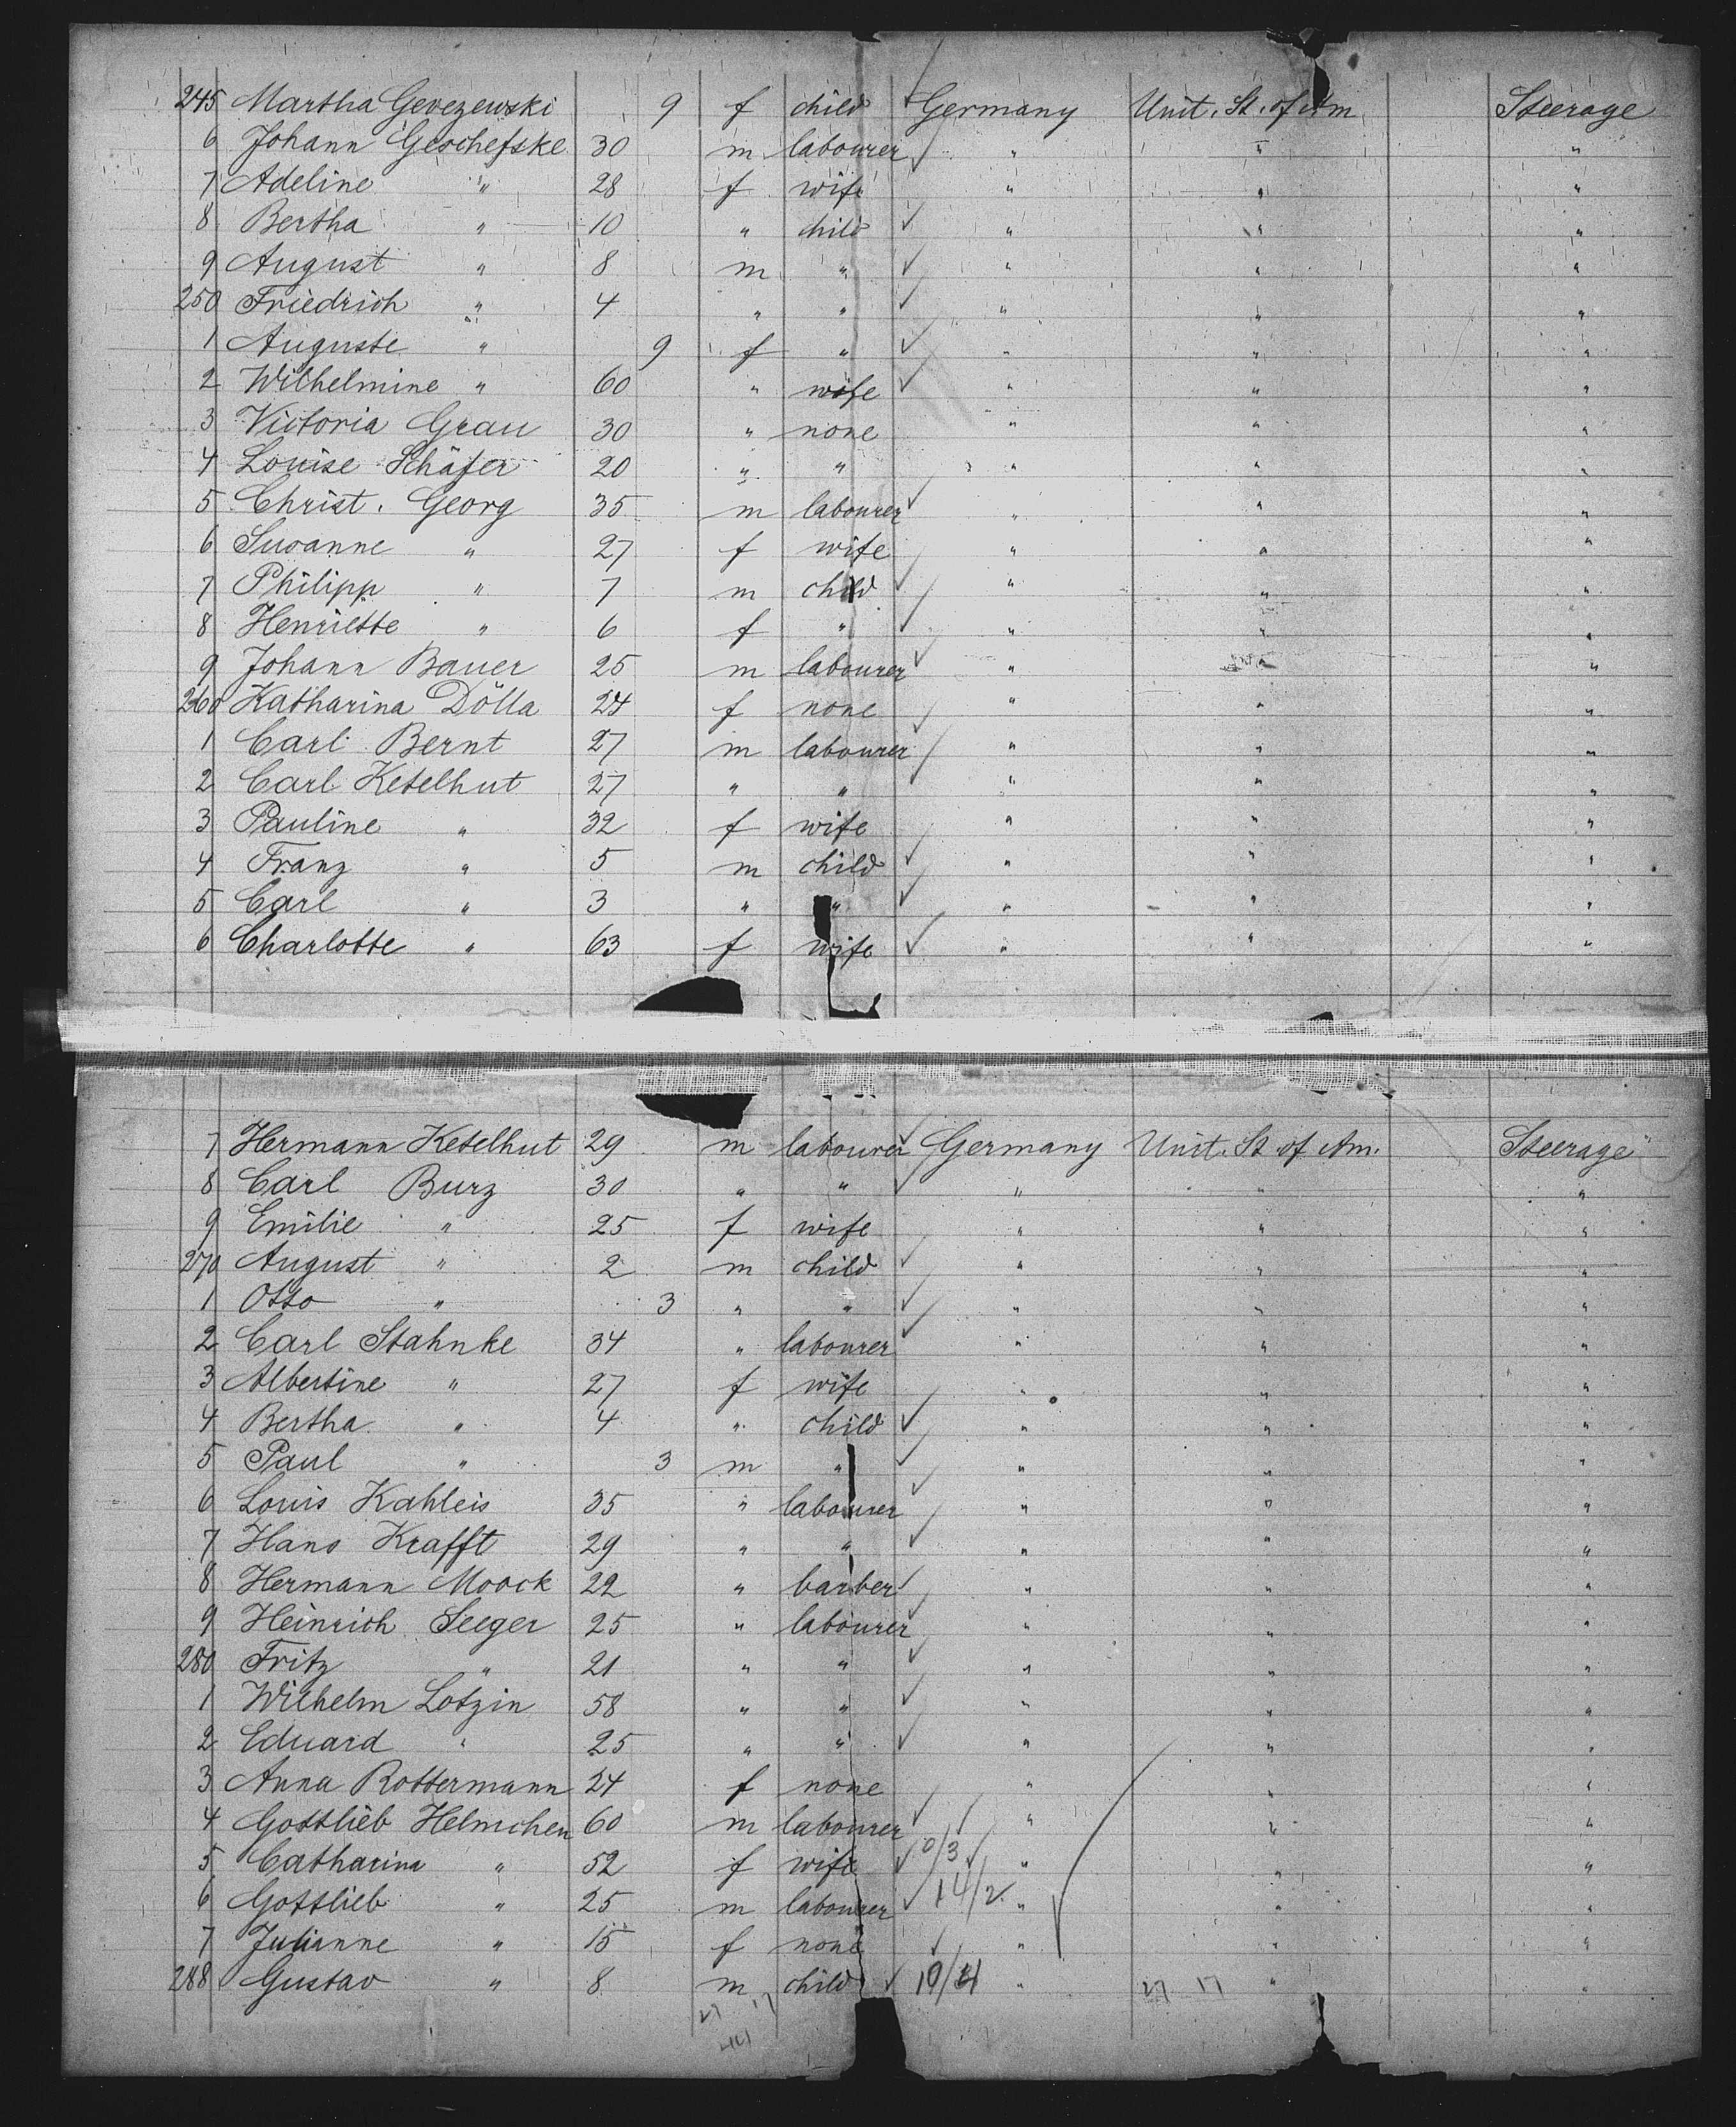 245 Martha Gevezewski 9 f child Germany Unit. St. of Am Steerage
6 Johann Geschefske 30 m labourer " " "
7 Adeline " 28 f wife " " "
8 Bertha " 10 " child " " "
9 August " 8 m " " " "
250 Friedrich " 4 " " " " "
1 Auguste " 9 f " " " "
2 Wilhelmine " 60 " wife " " "
3 Victoria Grau 30 " none " " "
4 Louise Schäfer 20 " " " " "
5 Christ. Georg 35 m labourer " " "
6 Susanne " 27 f wife " " "
7 Philipp " 7 m child " " "
8 Henriette " 6 f " " " "
9 Johann Bauer 25 m labourer " " "
260 Katharina Dölla 24 f none " " "
1 Carl Bernt 27 m labourer " " "
2 Carl Ketelhut 27 " " " " "
3 Pauline " 32 f wife " " "
4 Franz " 5 m child " " "
5 Carl " 3 " " " " "
6 Charlotte " 63 f wife " " "
7 Hermann Ketelhut 29 m labourer Germany Unit. St of Am. Steerage
8 Carl Burz 30 " " " " "
9 Emilie " 25 f wife " " "
270 August " 2 m child " " "
1 Otto " 3 " " " " "
2 Carl Stahnke 34 " labourer " " "
3 Albertine " 27 f wife " " "
4 Bertha " 4 " child " " "
5 Paul " 3 m " " " "
6 Louis Kahleis 35 " labourer " " "
7 Hans Krafft 29 " " " " "
8 Hermann Moock 22 " barber " " "
9 Heinrich Seeger 25 " labourer " " "
280 Fritz " 21 " " " " "
1 Wilhelm Lotzin 58 " " " " "
2 Eduard " 25 " " " " "
3 Anna Rottermann 24 f none " " "
4 Gottlieb Helmchen 60 m labourer " " "
5 Catharina " 52 f wife 0/3 " " "
6 Gottlieb " 25 m labourer 14/2 " " "
7 Julianne " 15 f none " " "
288 Gustav " 8 m child 10/4 " 27 17 " "
27 17
44